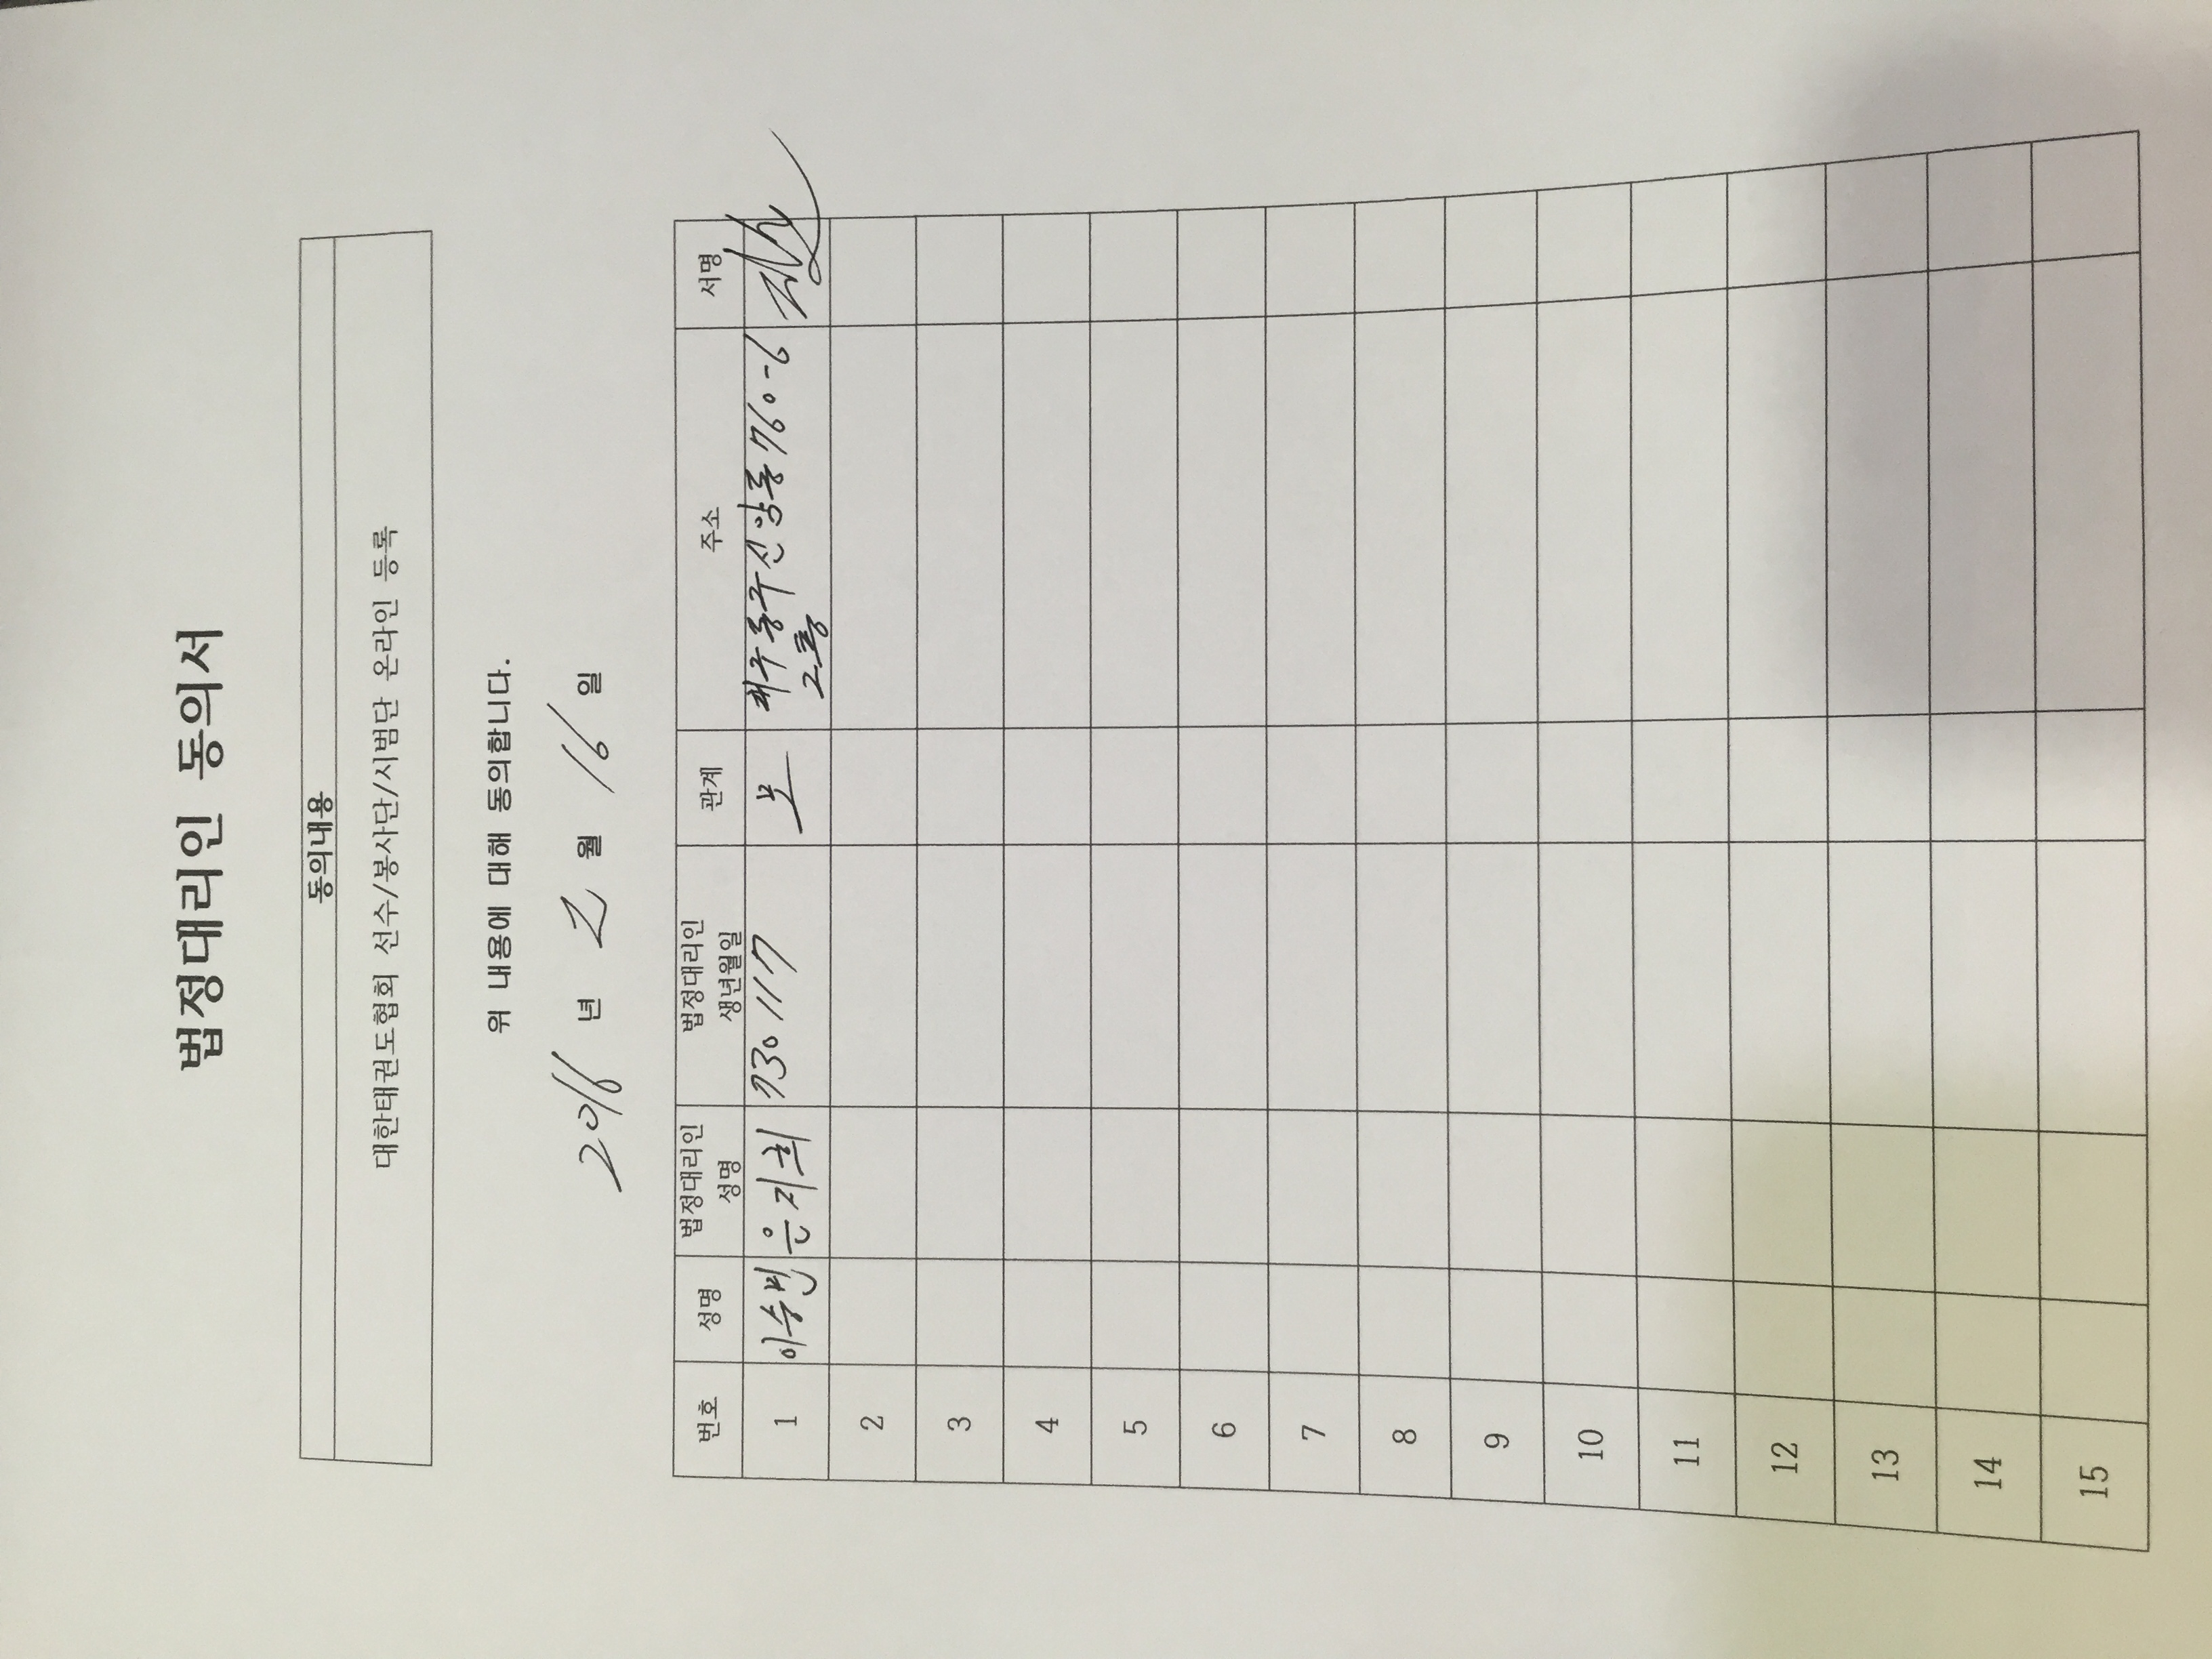 법정대리인 동의서
동의내용
대한태권도협회 선수/봉사단/시범단 온라인 등록
위 내용에 대해 동의합니다.
2016 년 2 월 16 일
번호 성명 법정대리인 성명 법정대리인 생년월일 관계 주소 서명
1 이수빈 은지희 730117 모 대구 동구 신암동 760-6
2층
2
3
4
5
6
7
8
9
10
11
12
13
14
15